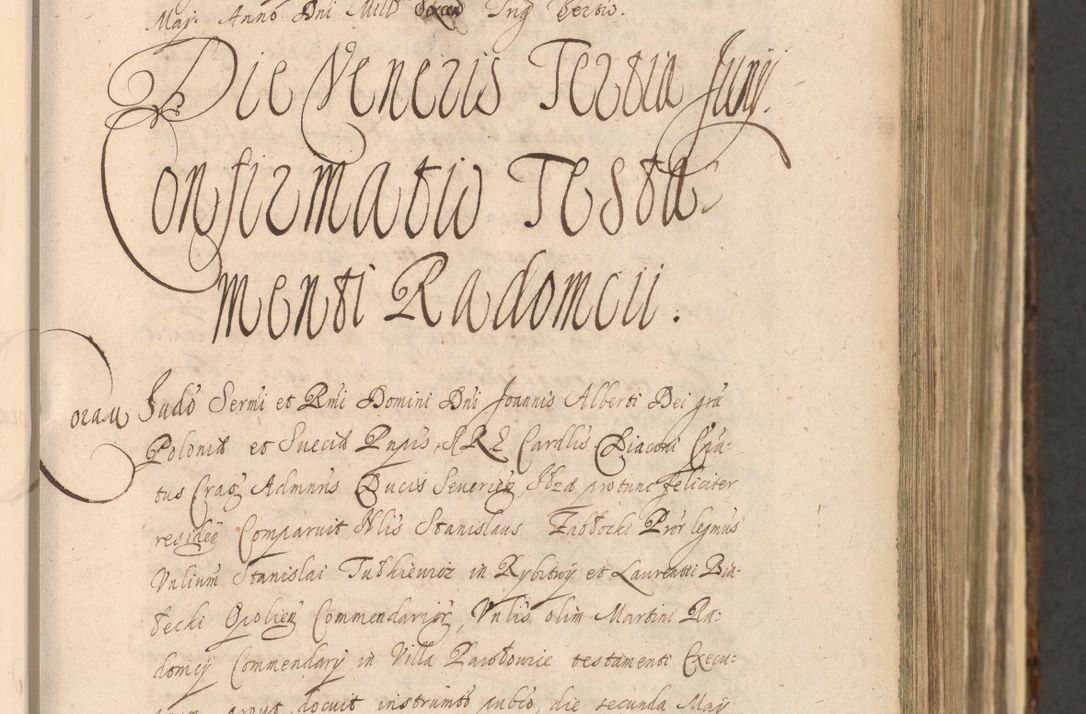 Maÿ Anno Dni Mill Ing tertio.
Die Veneris Tertia Junÿ.
Confirmatio Testa
menti Radomcii.
Coram Judō Sermi et Rmi Domini Dni Joannis Alberti Dei grā
Poloniæ et Sueciæ Pnpis, SRE Cardlis Diaconi Epa-
tus Crac Admnris Ducis Severien, Ibꝫd protunc feliciter
residen Comparuit Nlis Stanislaus Zabłocki Pror legmus
Vnlium Stanislai Tułkiewicz in Rybitwÿ et Laurentii Bia-
łecki Opolien Commendarior, Vnlis olim Martini Ra-
domcÿ Commendarÿ in Villa Pawłowice testamenti Execu-
docuit instrumto publō, die secunda Maÿ